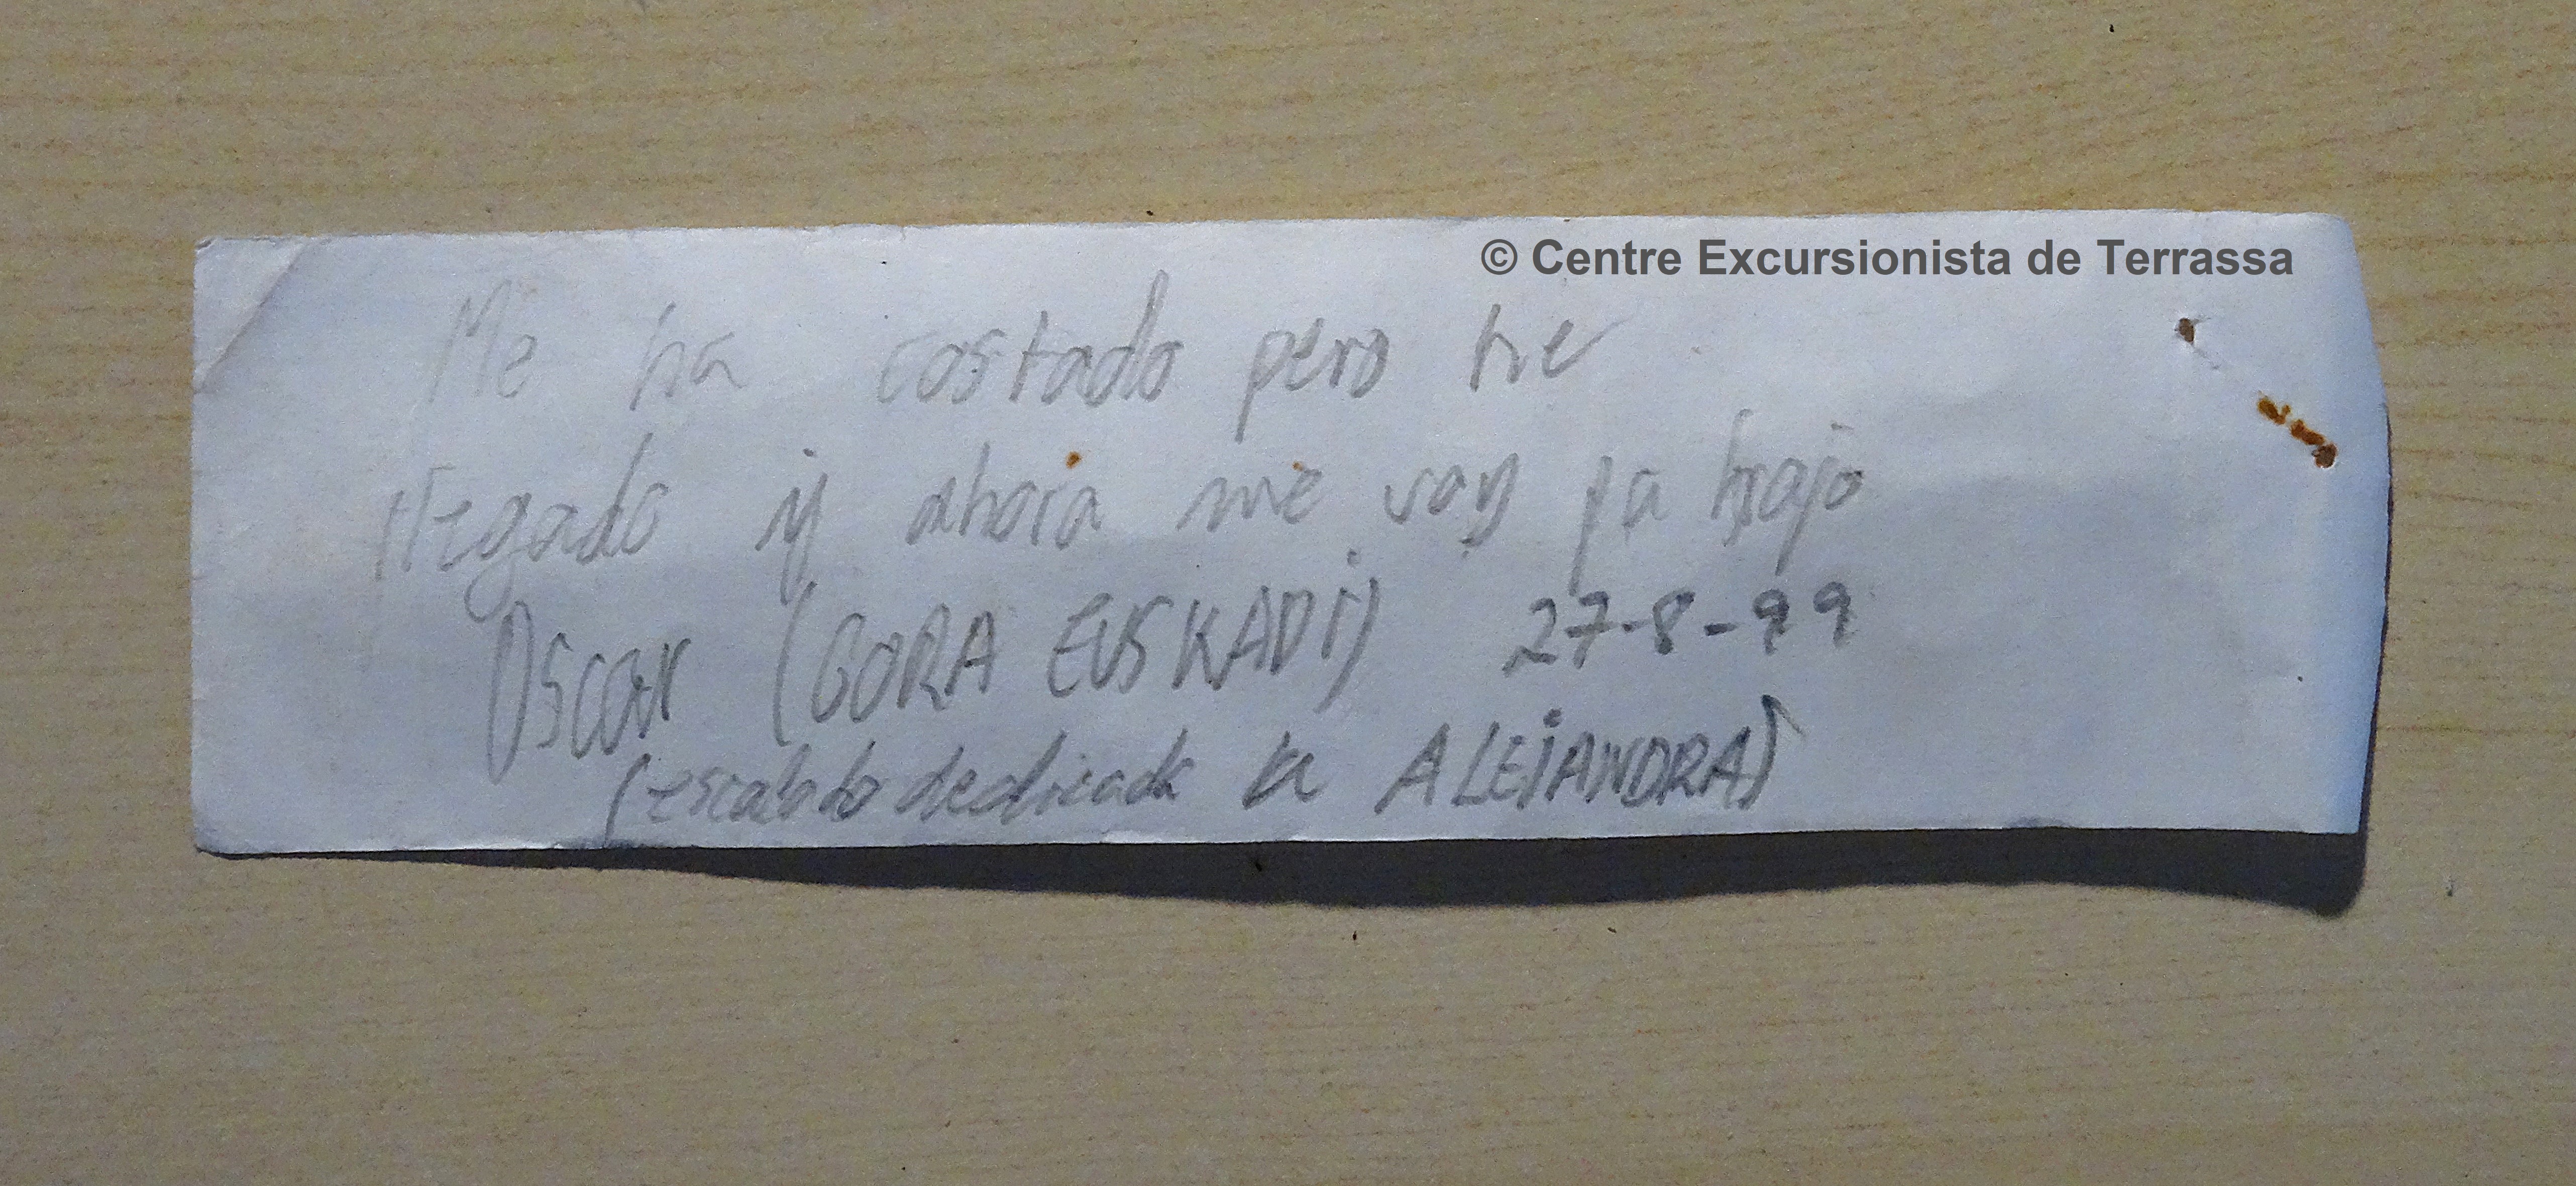 © Centre Excursionista de Terrassa
Me ha costado pero he
llegado y ahora me voy pa bajo
Oscar (GORA EUSKADI) 27-8-99
(escalada dedicada a ALEJANDRA)